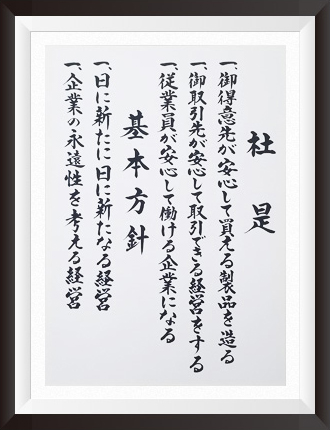 社是
一、御得意先が安心して買える製品を造る
一、御取引先が安心して取引できる経営をする
一、従業員が安心して働ける企業になる
基本方針
一、日に新たに日に新たなる経営
一、企業の永遠性を考える経営